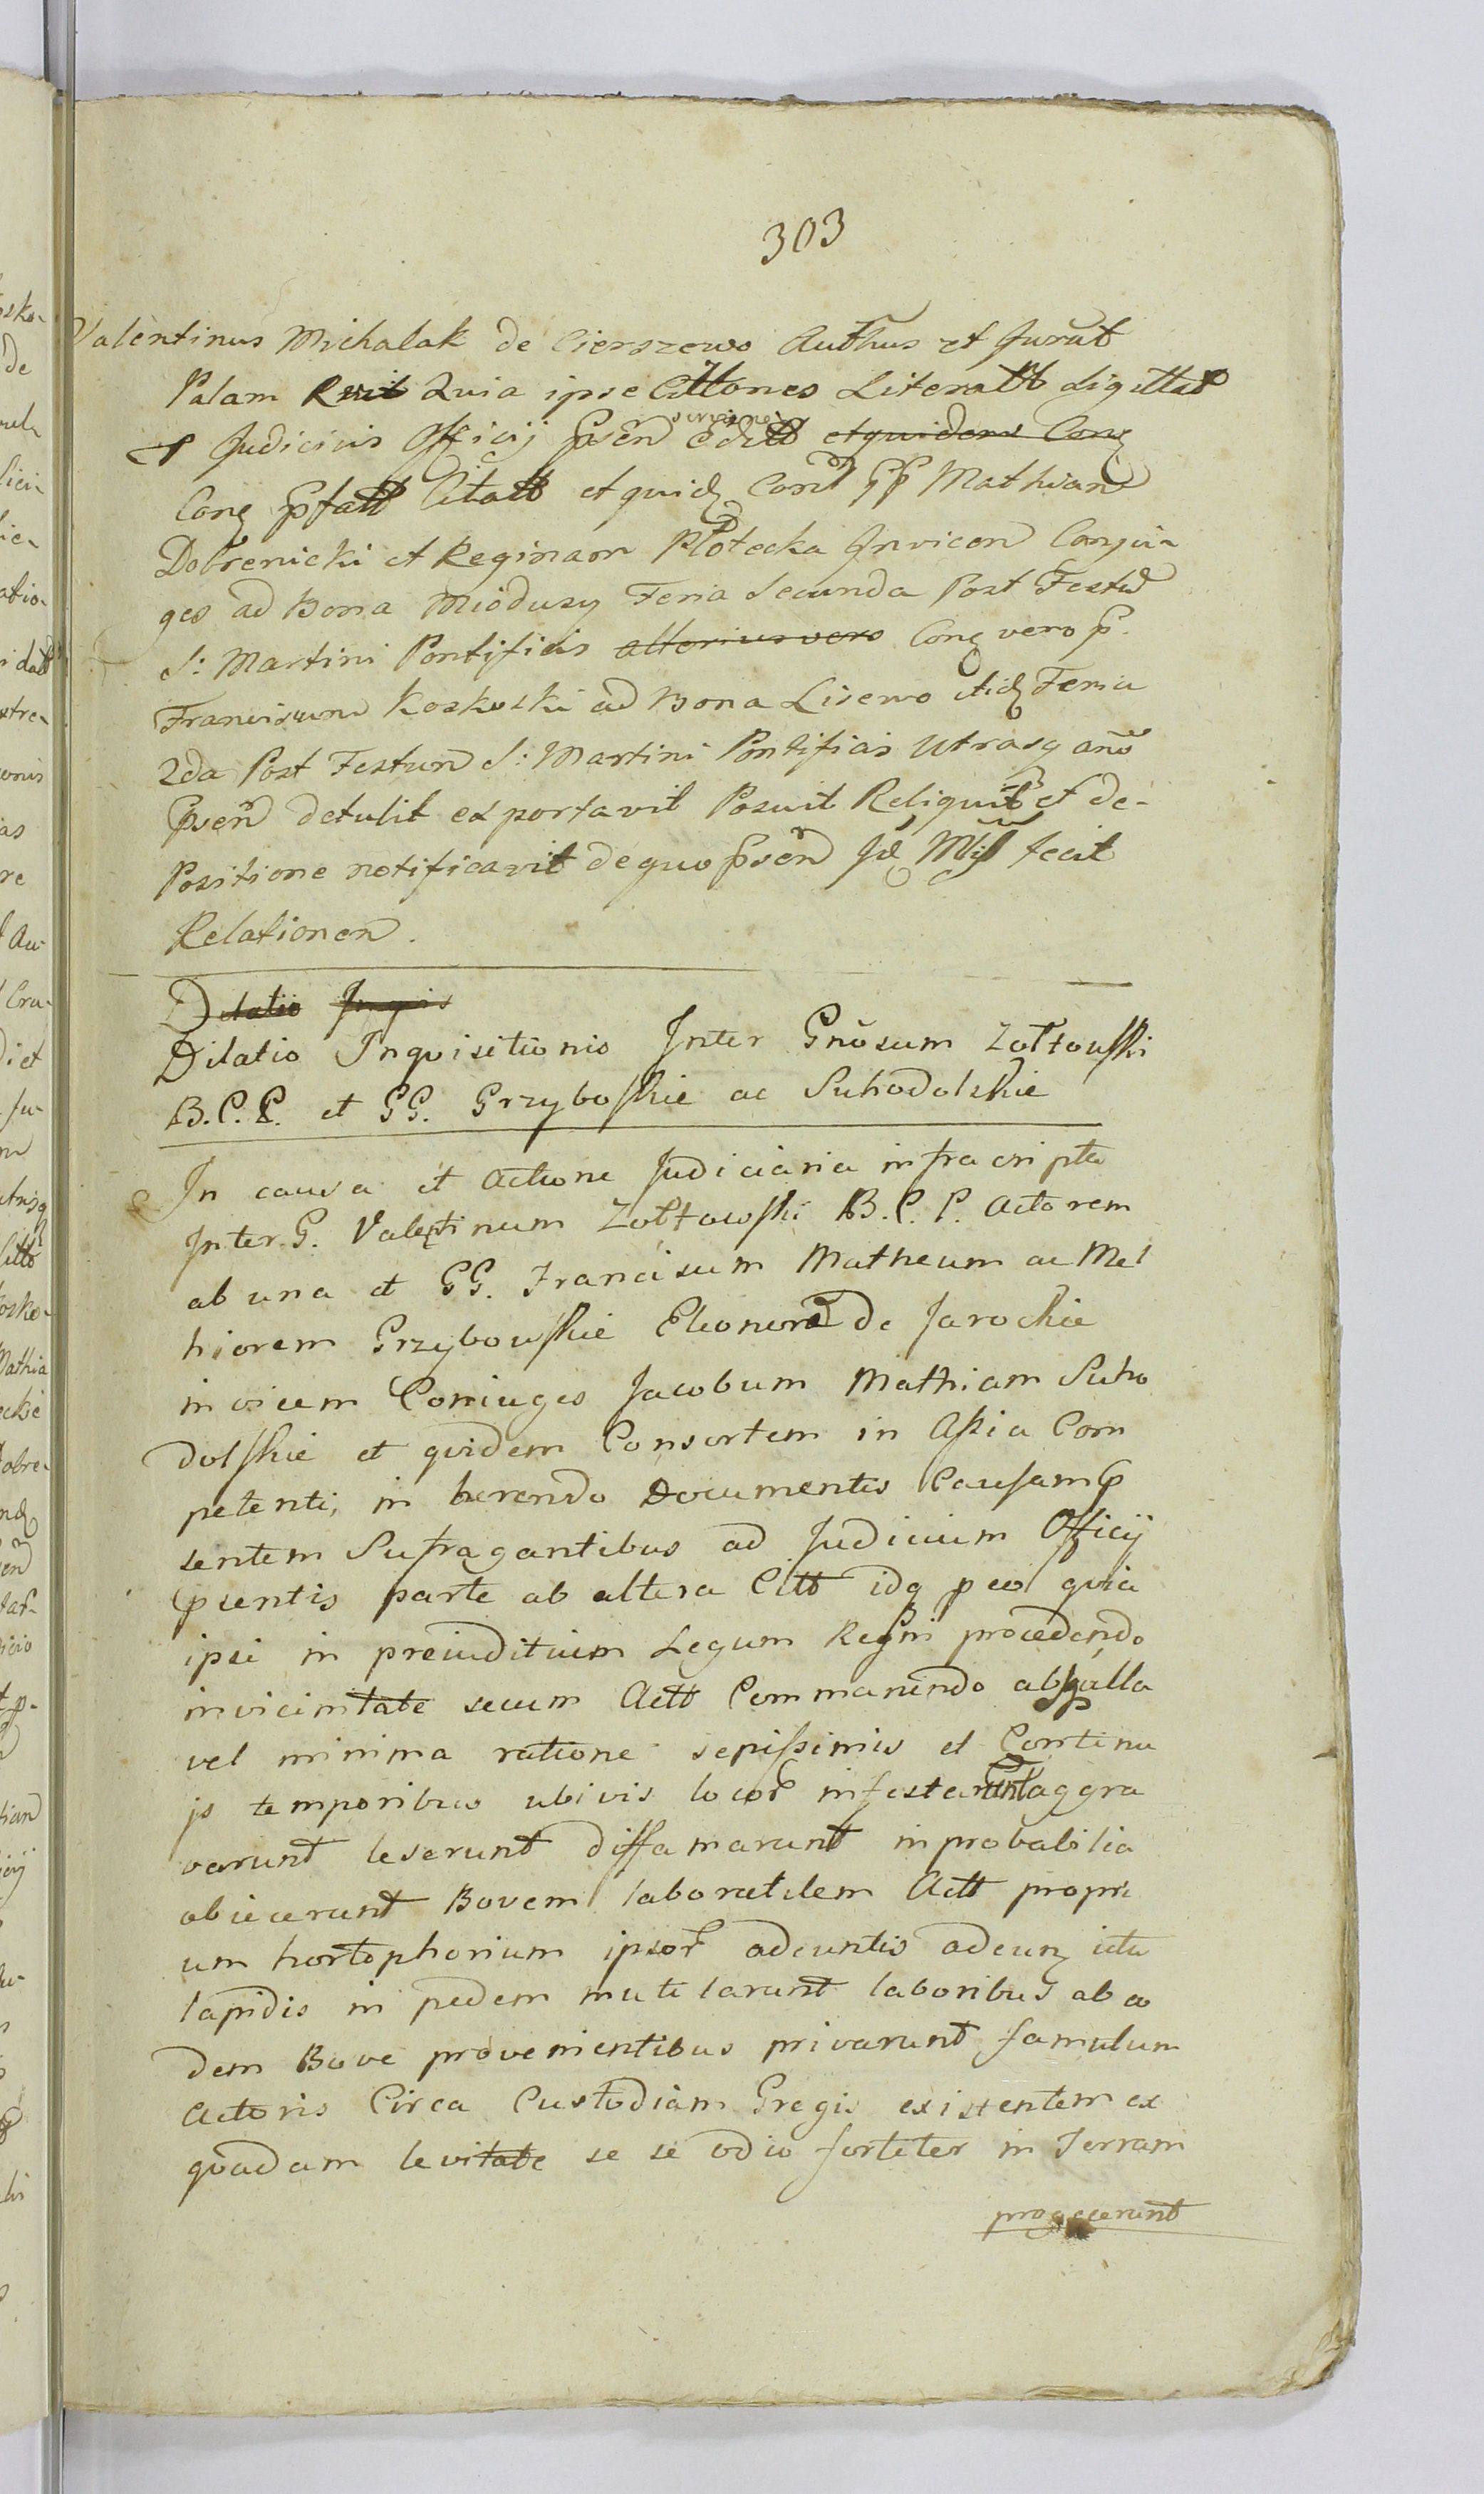 303
Valentinus Michalak de Cierszewo Authus et Jurat
Palam Quia ipse Cittones Literatt Ligittas
Judicius Officij Psen editt etquidem Conq
Conq Pfatt Citatt et quidq Cont PP Mathiam
Dobrenicki et Reginam Płotecka Invicem Conjui-
ges ad Bona Miodusy Feria Secunda Post Festu
S: Martini Pontificis alterius vero Conq vero P.
Franciscum Koskoski ad Bona Lisewo itidq Feria
2da Post Festum S: Martini Pontificis Utrasq ano
Psen detulit ex portavit Posuit Reliquit et de-
Positione notificavit de quo Psen Jd Mis fecit
Relationem.
Dilatio Inquis
Dilatio Inquisitionis Inter Gnosum Zołtowski
B.C.P. et GG. Grzyboskie ac Suhodolskie
In causa et Actione Judiciaria infra cripta
Inter G. Valentinum Zołtowski B.C.P. Actorem
ab una et GG. Franciscum Matheum ac Mel
hiorem Grzybowskie Eleonora de Jarockie
invicem Coniuges Jacobum Mathiam Suho
dolskie et quidem Consortem in Assia Com
petenti, in herendo Documentis Causam P
sentem Sufragantibus ad Judicium Officij
Psentis parte ab altera Citt idq p eo quia
ipsi in preiuditium Legum Regni procedendo
invicimtate secum Actt Commanendo absq ulla
vel minima ratione sepissimis et Continu
is temporibus ubivis locor infestarunt aggra
varunt leserunt diffamarunt inprobabilia
obiecerunt Bovem laboratilem Actt propri
um hortophorium ipsor adeuntis adeunq ictu
lapidis in pedem mutilarunt laboribus ab eo
dem Bove provenientibus privarunt famulum
Actoris Circa Custodiam Gregis existentem ex
quadam levitate se se odio fortiter in Terram
progecerunt